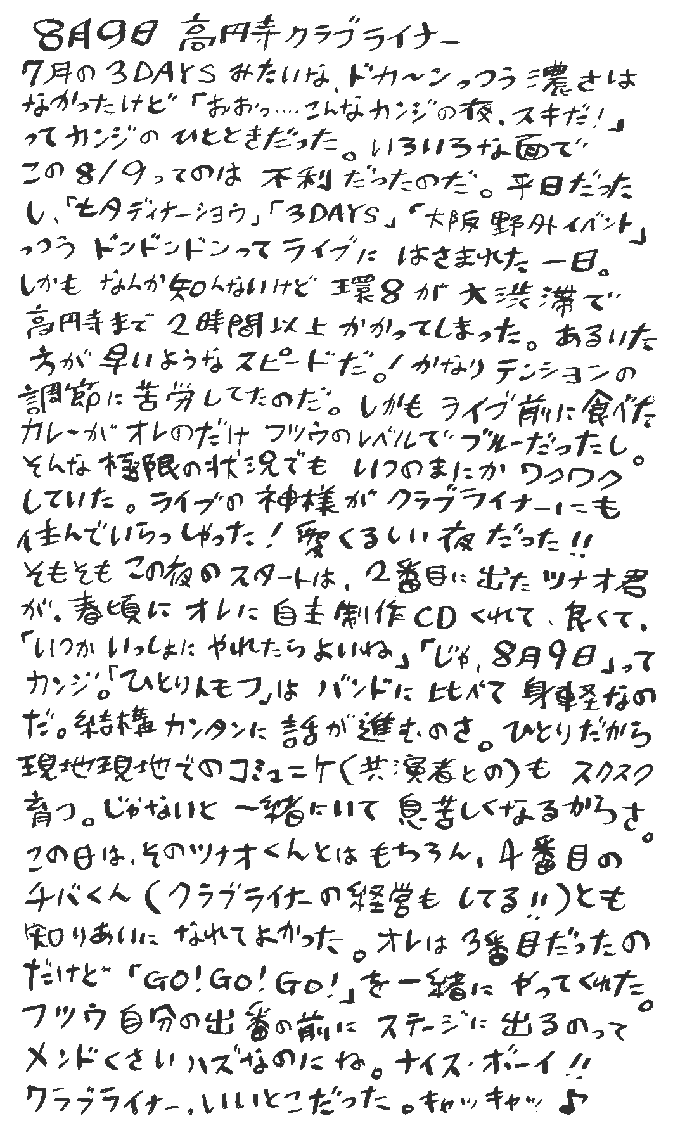 8月9日 高円寺クラブライナー
7月の3DAYSみたいな、ドカ〜ンっつう濃さは
なかったけど「おおっ‥‥こんなカンジの夜、スキだ!」
ってカンジのひとときだった。いろいろな面で
この8/9ってのは不利だったのだ。平日だった
し、「七夕ディナーショウ」「3DAYS」「大阪野外イベント」
っつうドンドンドンってライブにはさまれた一日。
しかもなんか知んないけど環8が大渋滞で
高円寺まで2時間以上かかってしまった。あるいた
方が早いようなスピードだ。!かなりテンションの
調節に苦労してたのだ。しかもライブ前に食べた
カレーがオレのだけフツウのレベルでブルーだったし。
そんな極限の状況でもいつのまにかワクワク
していた。ライブの神様がクラブライナーにも
住んでいらっしゃった!愛くるしい夜だった!!
そもそもこの夜のスタートは、2番目に出たツナオ君
が、春頃にオレに自主制作CDくれて、良くて、
「いつかいっしょにやれたらよいね」「じゃ、8月9日」って
カンジ。「ひとりんモフ」はバンドに比べて身軽なの
だ。結構カンタンに話が進むのさ。ひとりだから
現地現地でのコミュニケ(共演者との)もスクスク
育つ。じゃないと一緒にいて息苦しくなるからさ。
この日は、そのツナオくんとはもちろん、4番目の
チバくん(クラブライナーの経営もしてる!!)とも
知りあいになれてよかった。オレは3番目だったの
だけど「GO!GO!GO!」を一緒にやってくれた。
フツウ自分の出番の前にステージに出るのって
メンドくさいハズなのにね。ナイス・ボーイ!!
クラブライナー、いいとこだった。キャッキャッ♪